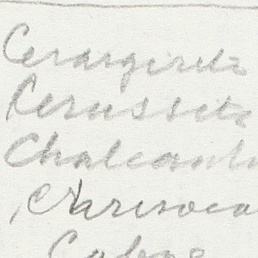 Cerargirite
Cerussite
Chalcant
Chrisoca